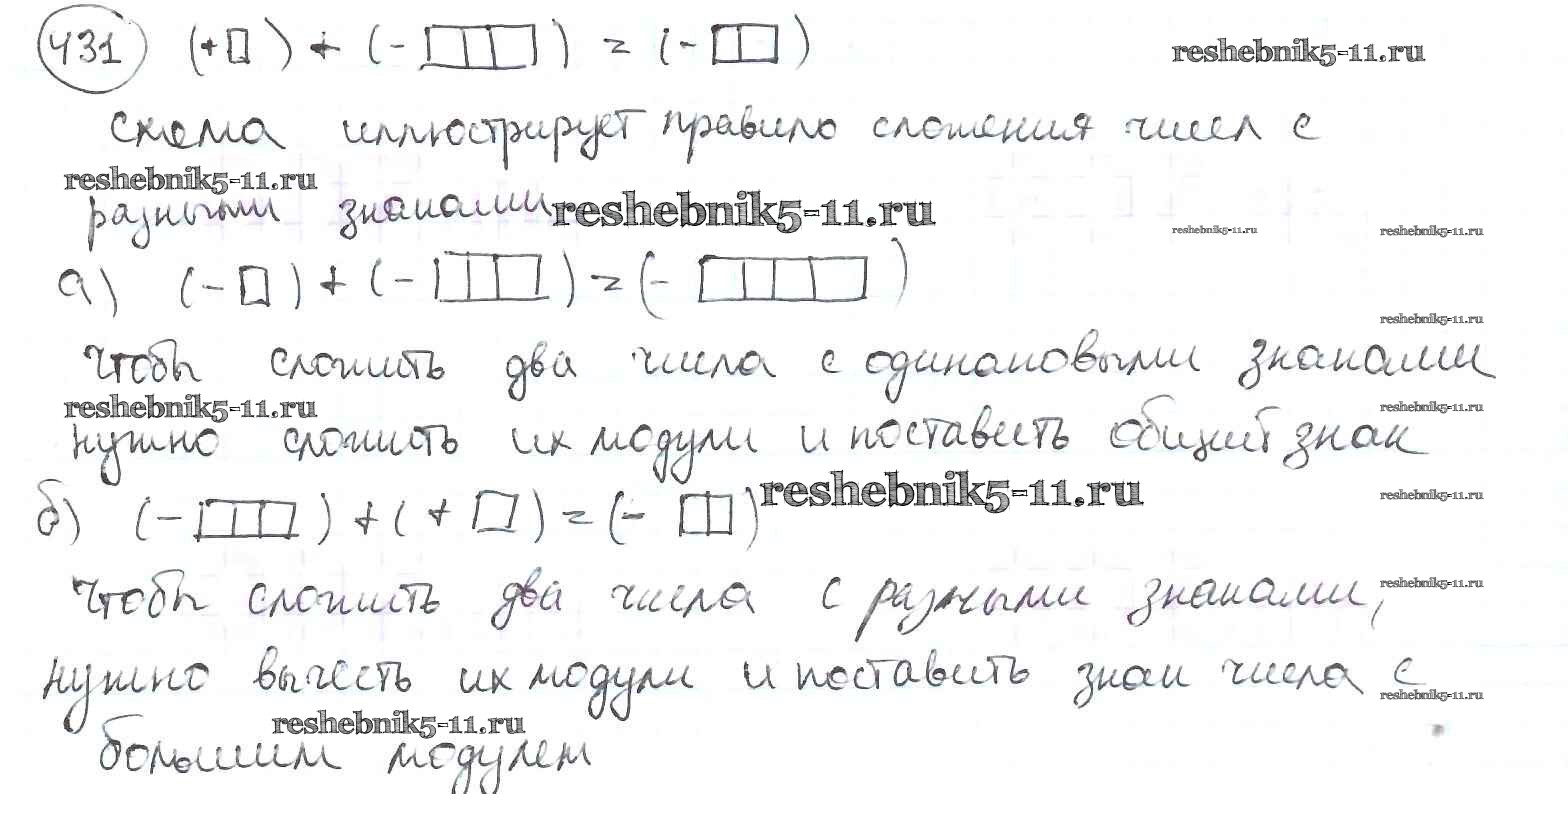 431 (+□) + (-□□□) = (-□□)
reshebnik5-11.ru
схема иллюстрирует правило сложения чисел с
reshebnik5-11.ru
разными знаками
reshebnik5-11.ru
reshebnik5-11.ru
reshebnik5-11.ru
а) (-□) + (-□□□) = (-□□□□)
reshebnik5-11.ru
Чтобы сложить два числа с одинаковыми знаками
reshebnik5-11.ru
reshebnik5-11.ru
нужно сложить их модули и поставить общий знак
reshebnik5-11.ru
reshebnik5-11.ru
б) (-□□□) + (+□) = (-□□)
Чтобы сложить два числа с разными знаками,
reshebnik5-11.ru
нужно вычесть их модули и поставить знак числа с
reshebnik5-11.ru
reshebnik5-11.ru
большим модулем